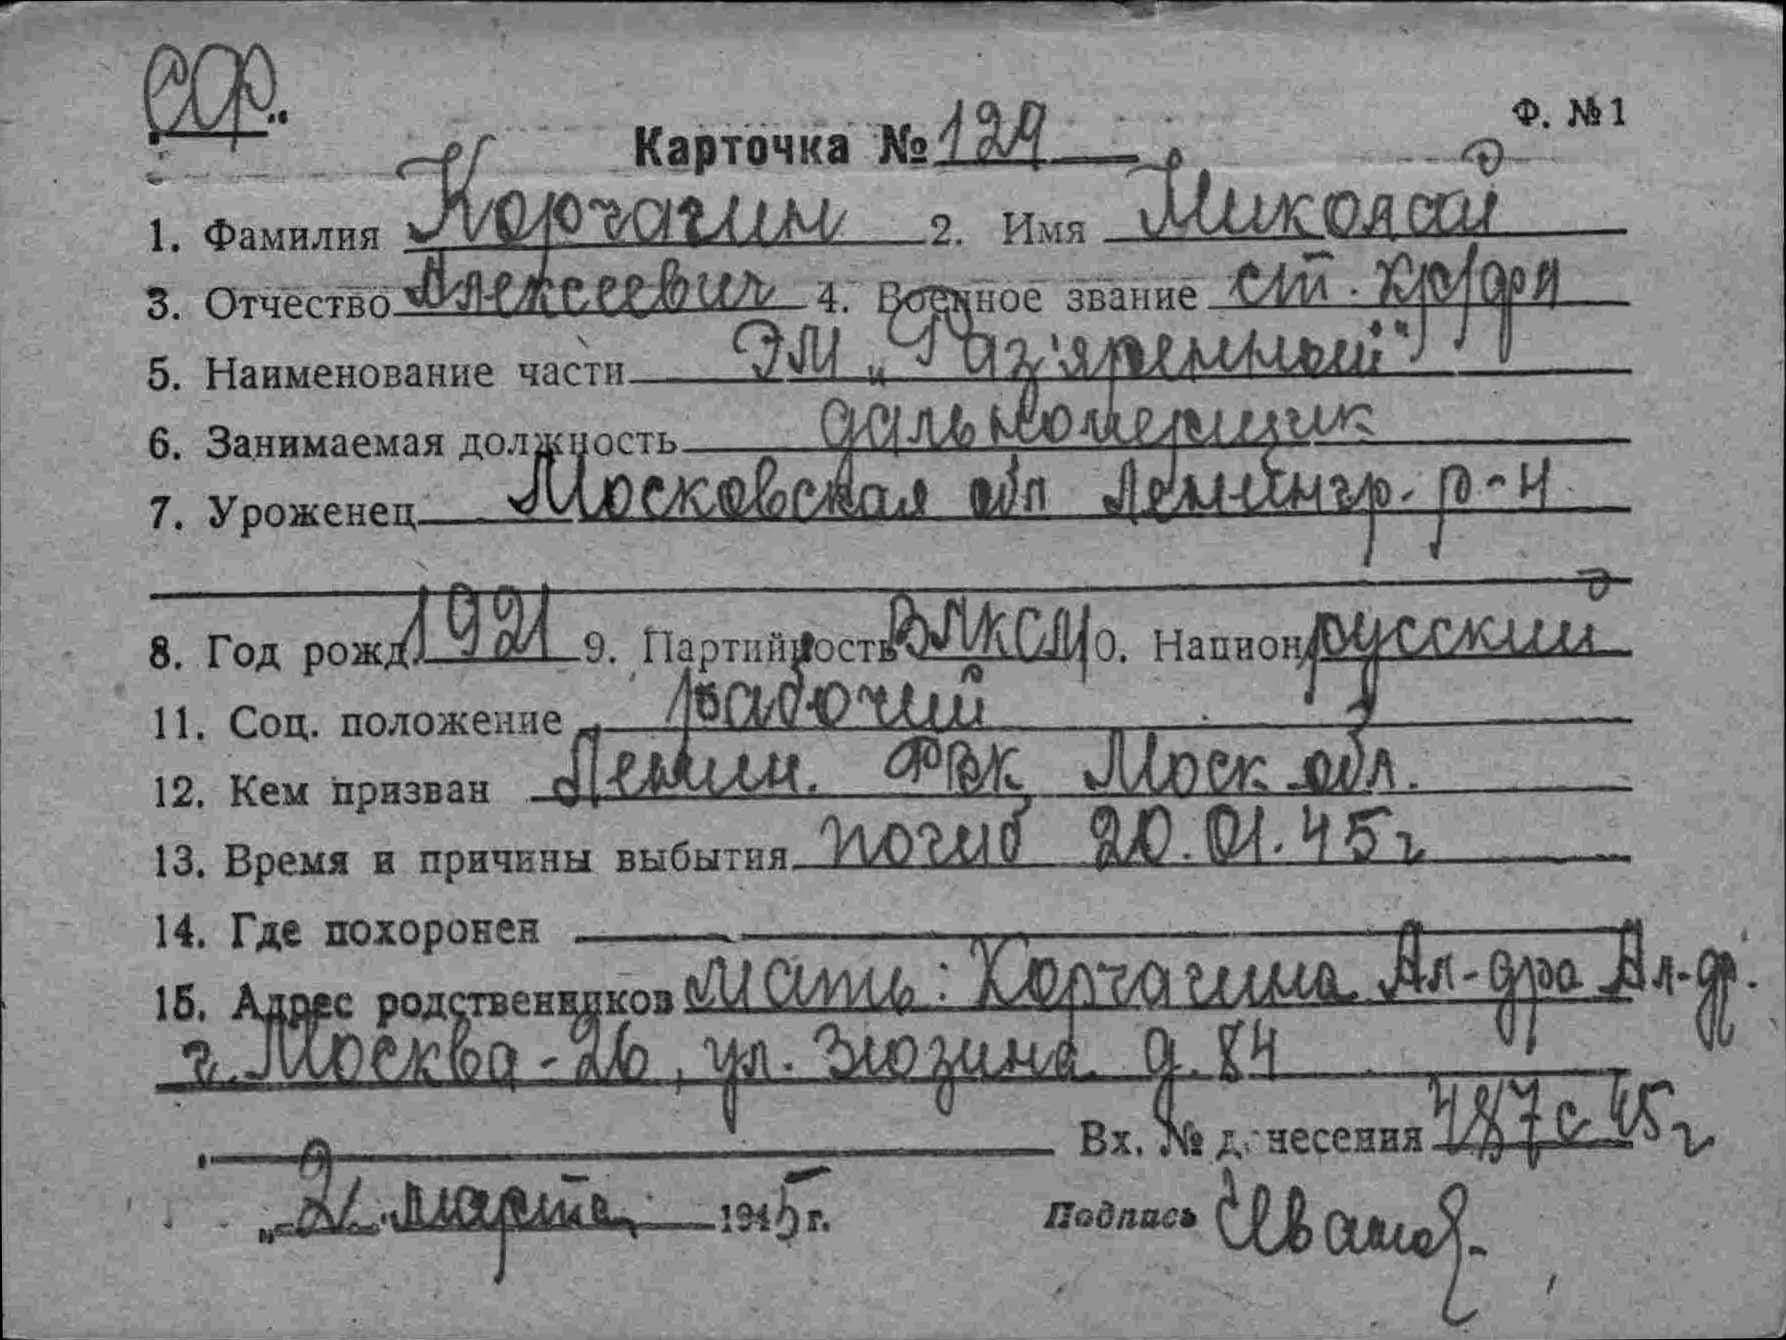 ССФ.
Ф. № 1
Карточка № 129
1. Фамилия Корчагин 2. Имя Николай
3. Отчество Алексеевич 4. Военное звание ст. кр/фл
5. Наименование части ЭМ „Раз'яренный"
6. Занимаемая должность дальномерщик
7. Уроженец Московская обл Ленингр. р-н
8. Год рожд. 1921 9. Партийность ВЛКСМ 10. Национ. русский
11. Соц. положение рабочий
12. Кем призван Ленин. РВК Моск обл.
13. Время и причины выбытия погиб 20.01.45 г
14. Где похоронен
15. Адрес родственников мать: Корчагина Ал-дра Ал-др.
г. Москва-26, ул. Зюзина д. 84
Вх. № донесения 487с 45 г
„21" марта 1945 г. Подпись